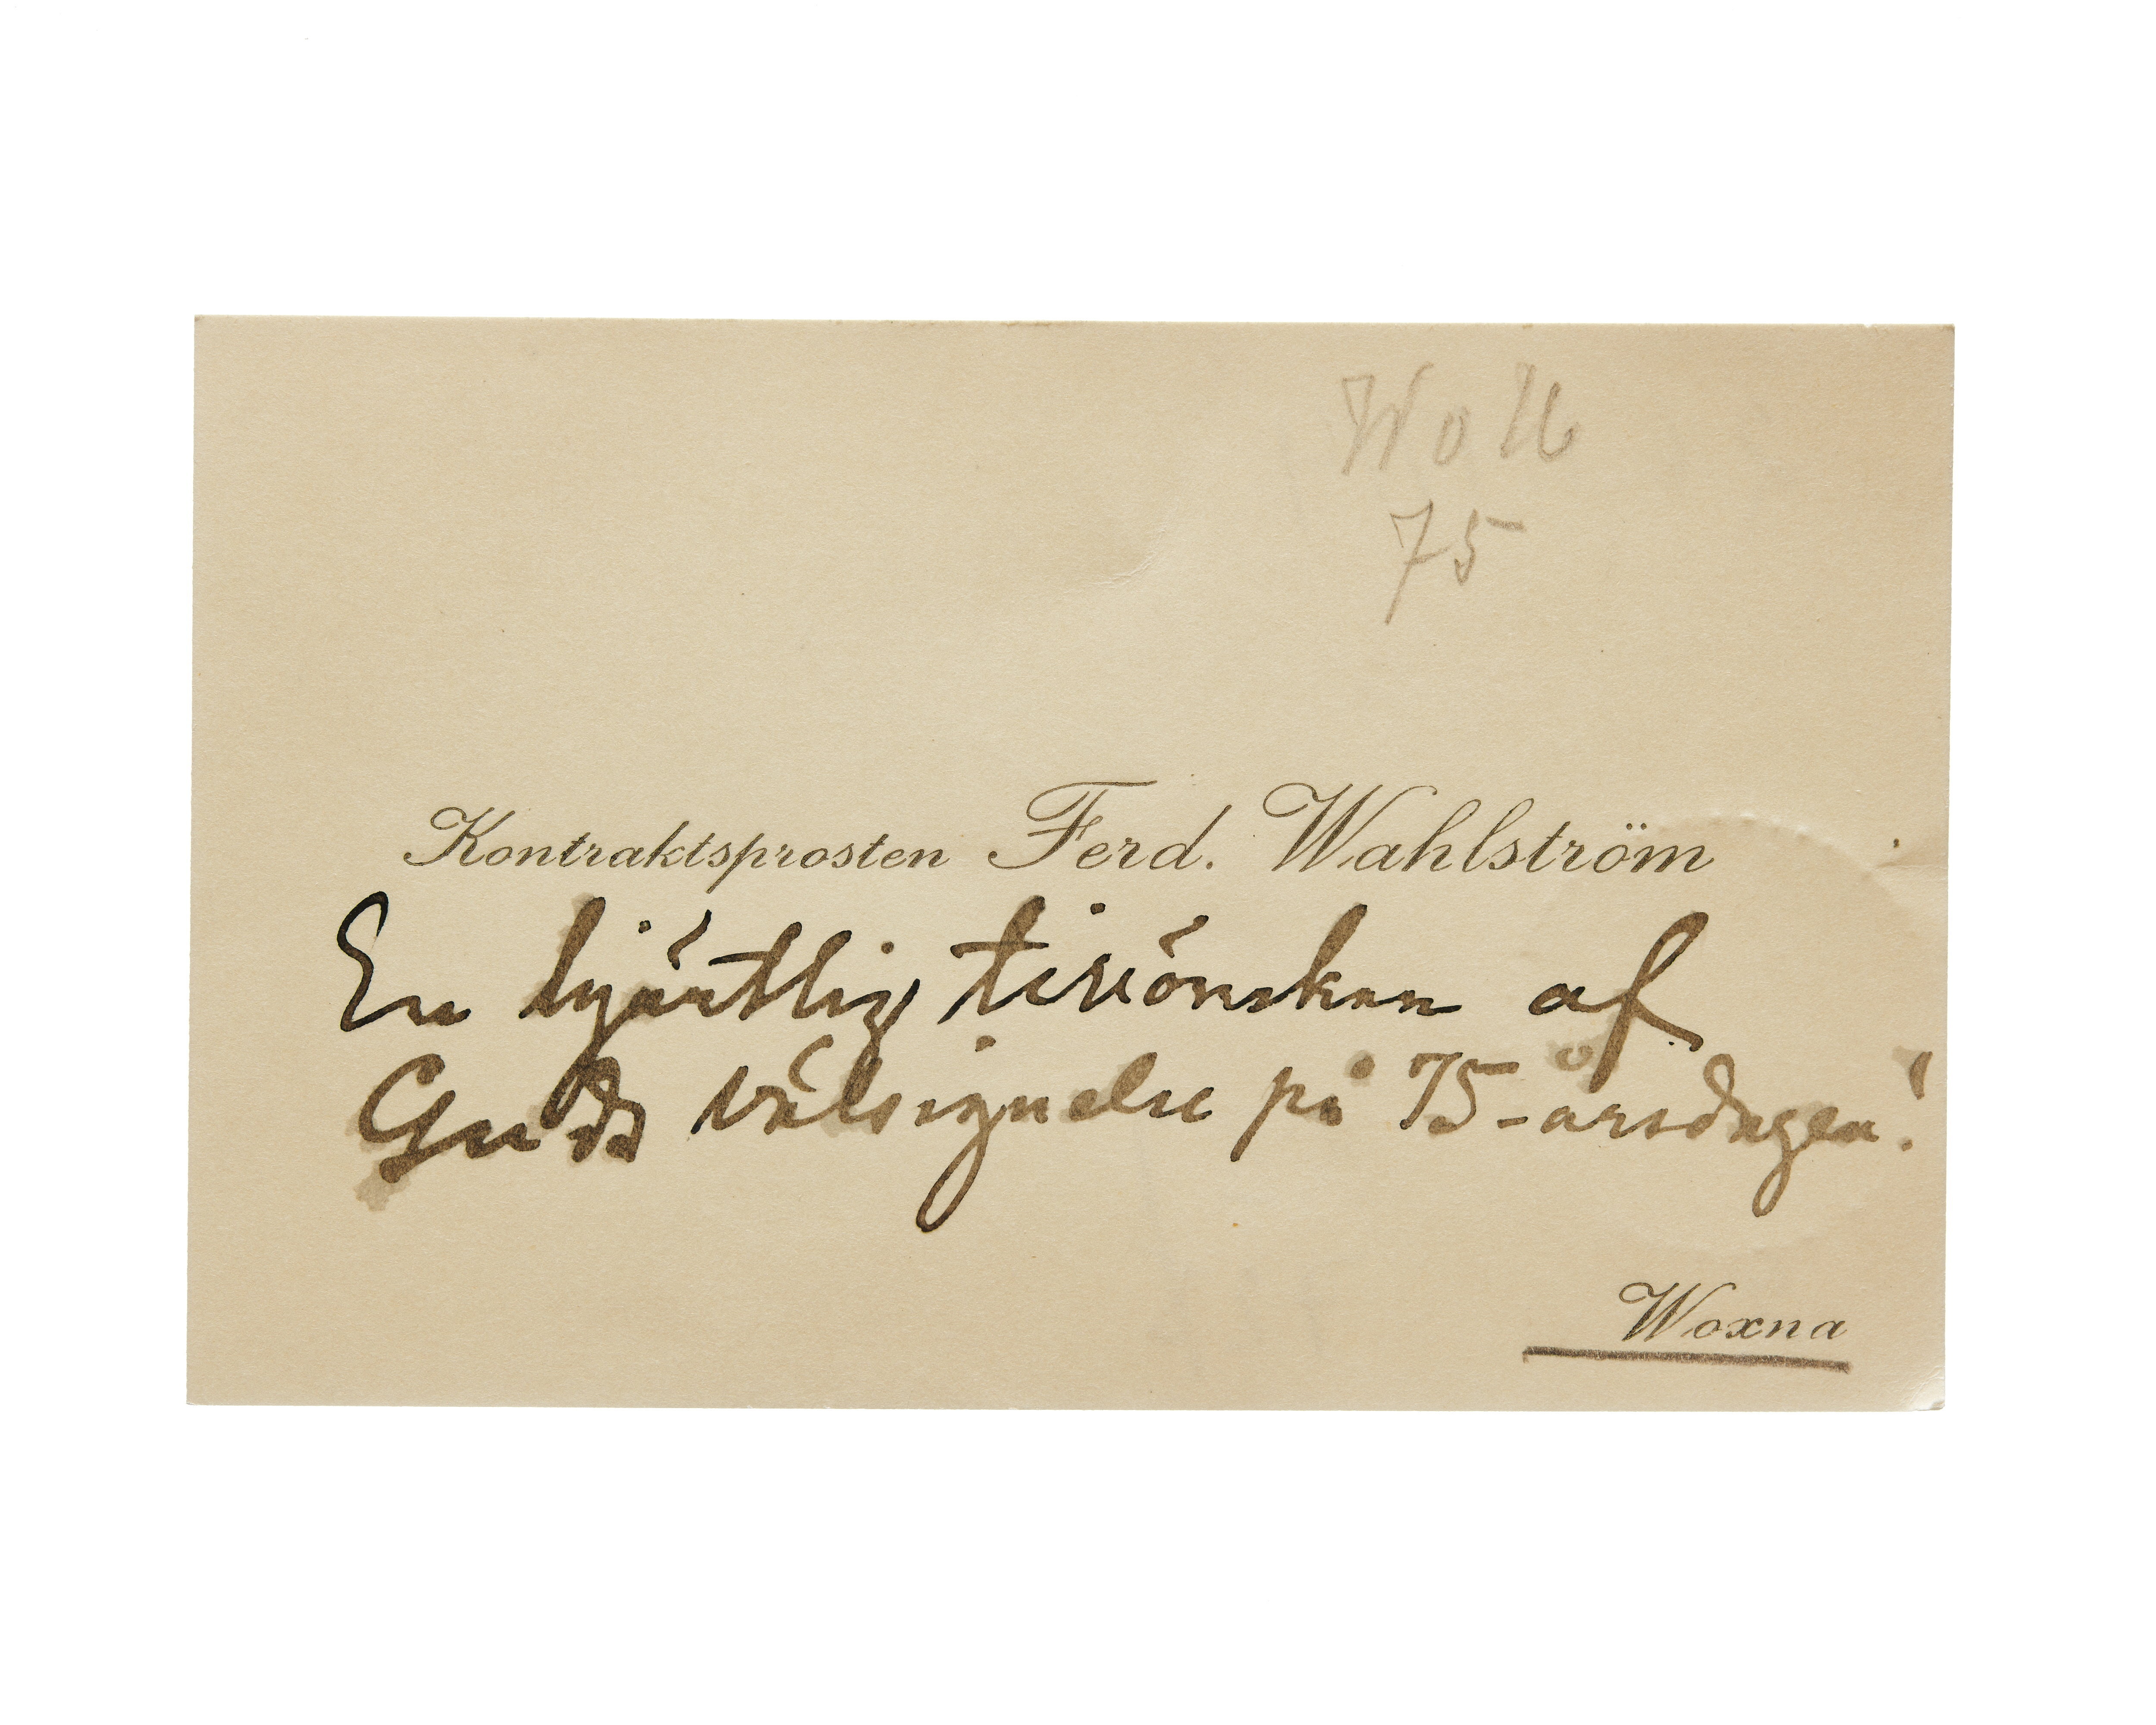 W o H
75
Kontraktsprosten Ferd. Wahlström
En hjärtlig tillönskan af
Guds välsignelse på 75-årsdagen!
Woxna